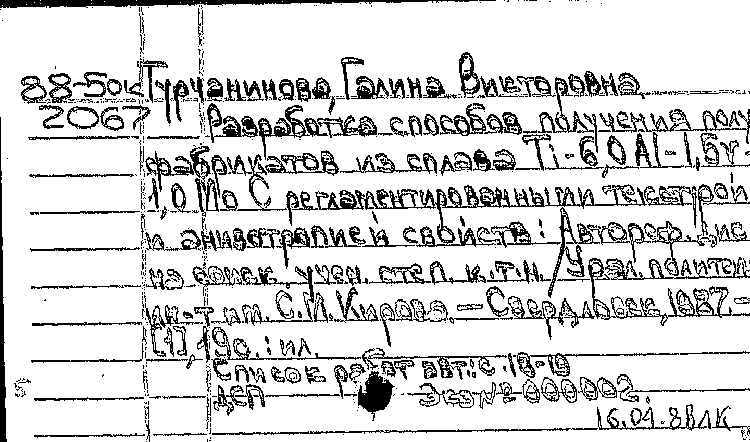 88-50к Турчанинова, Галина Викторовна.
2067 Разработка способов получения полу-
фабрикатов из сплава Ti-6,0Al-1,5V-
1,0 Mo с регламентированными текстурой
и анизотропией свойств: Автореф. дис.
на соиск. учен. степ. к.т.н. Урал. политехн.
ин-т им. С.М.Кирова. - Свердловск, 1987. -
[1], 19с.: ил.
Список работ авт.: с. 18-19
ДСП Экз № 000002.
16.04.88